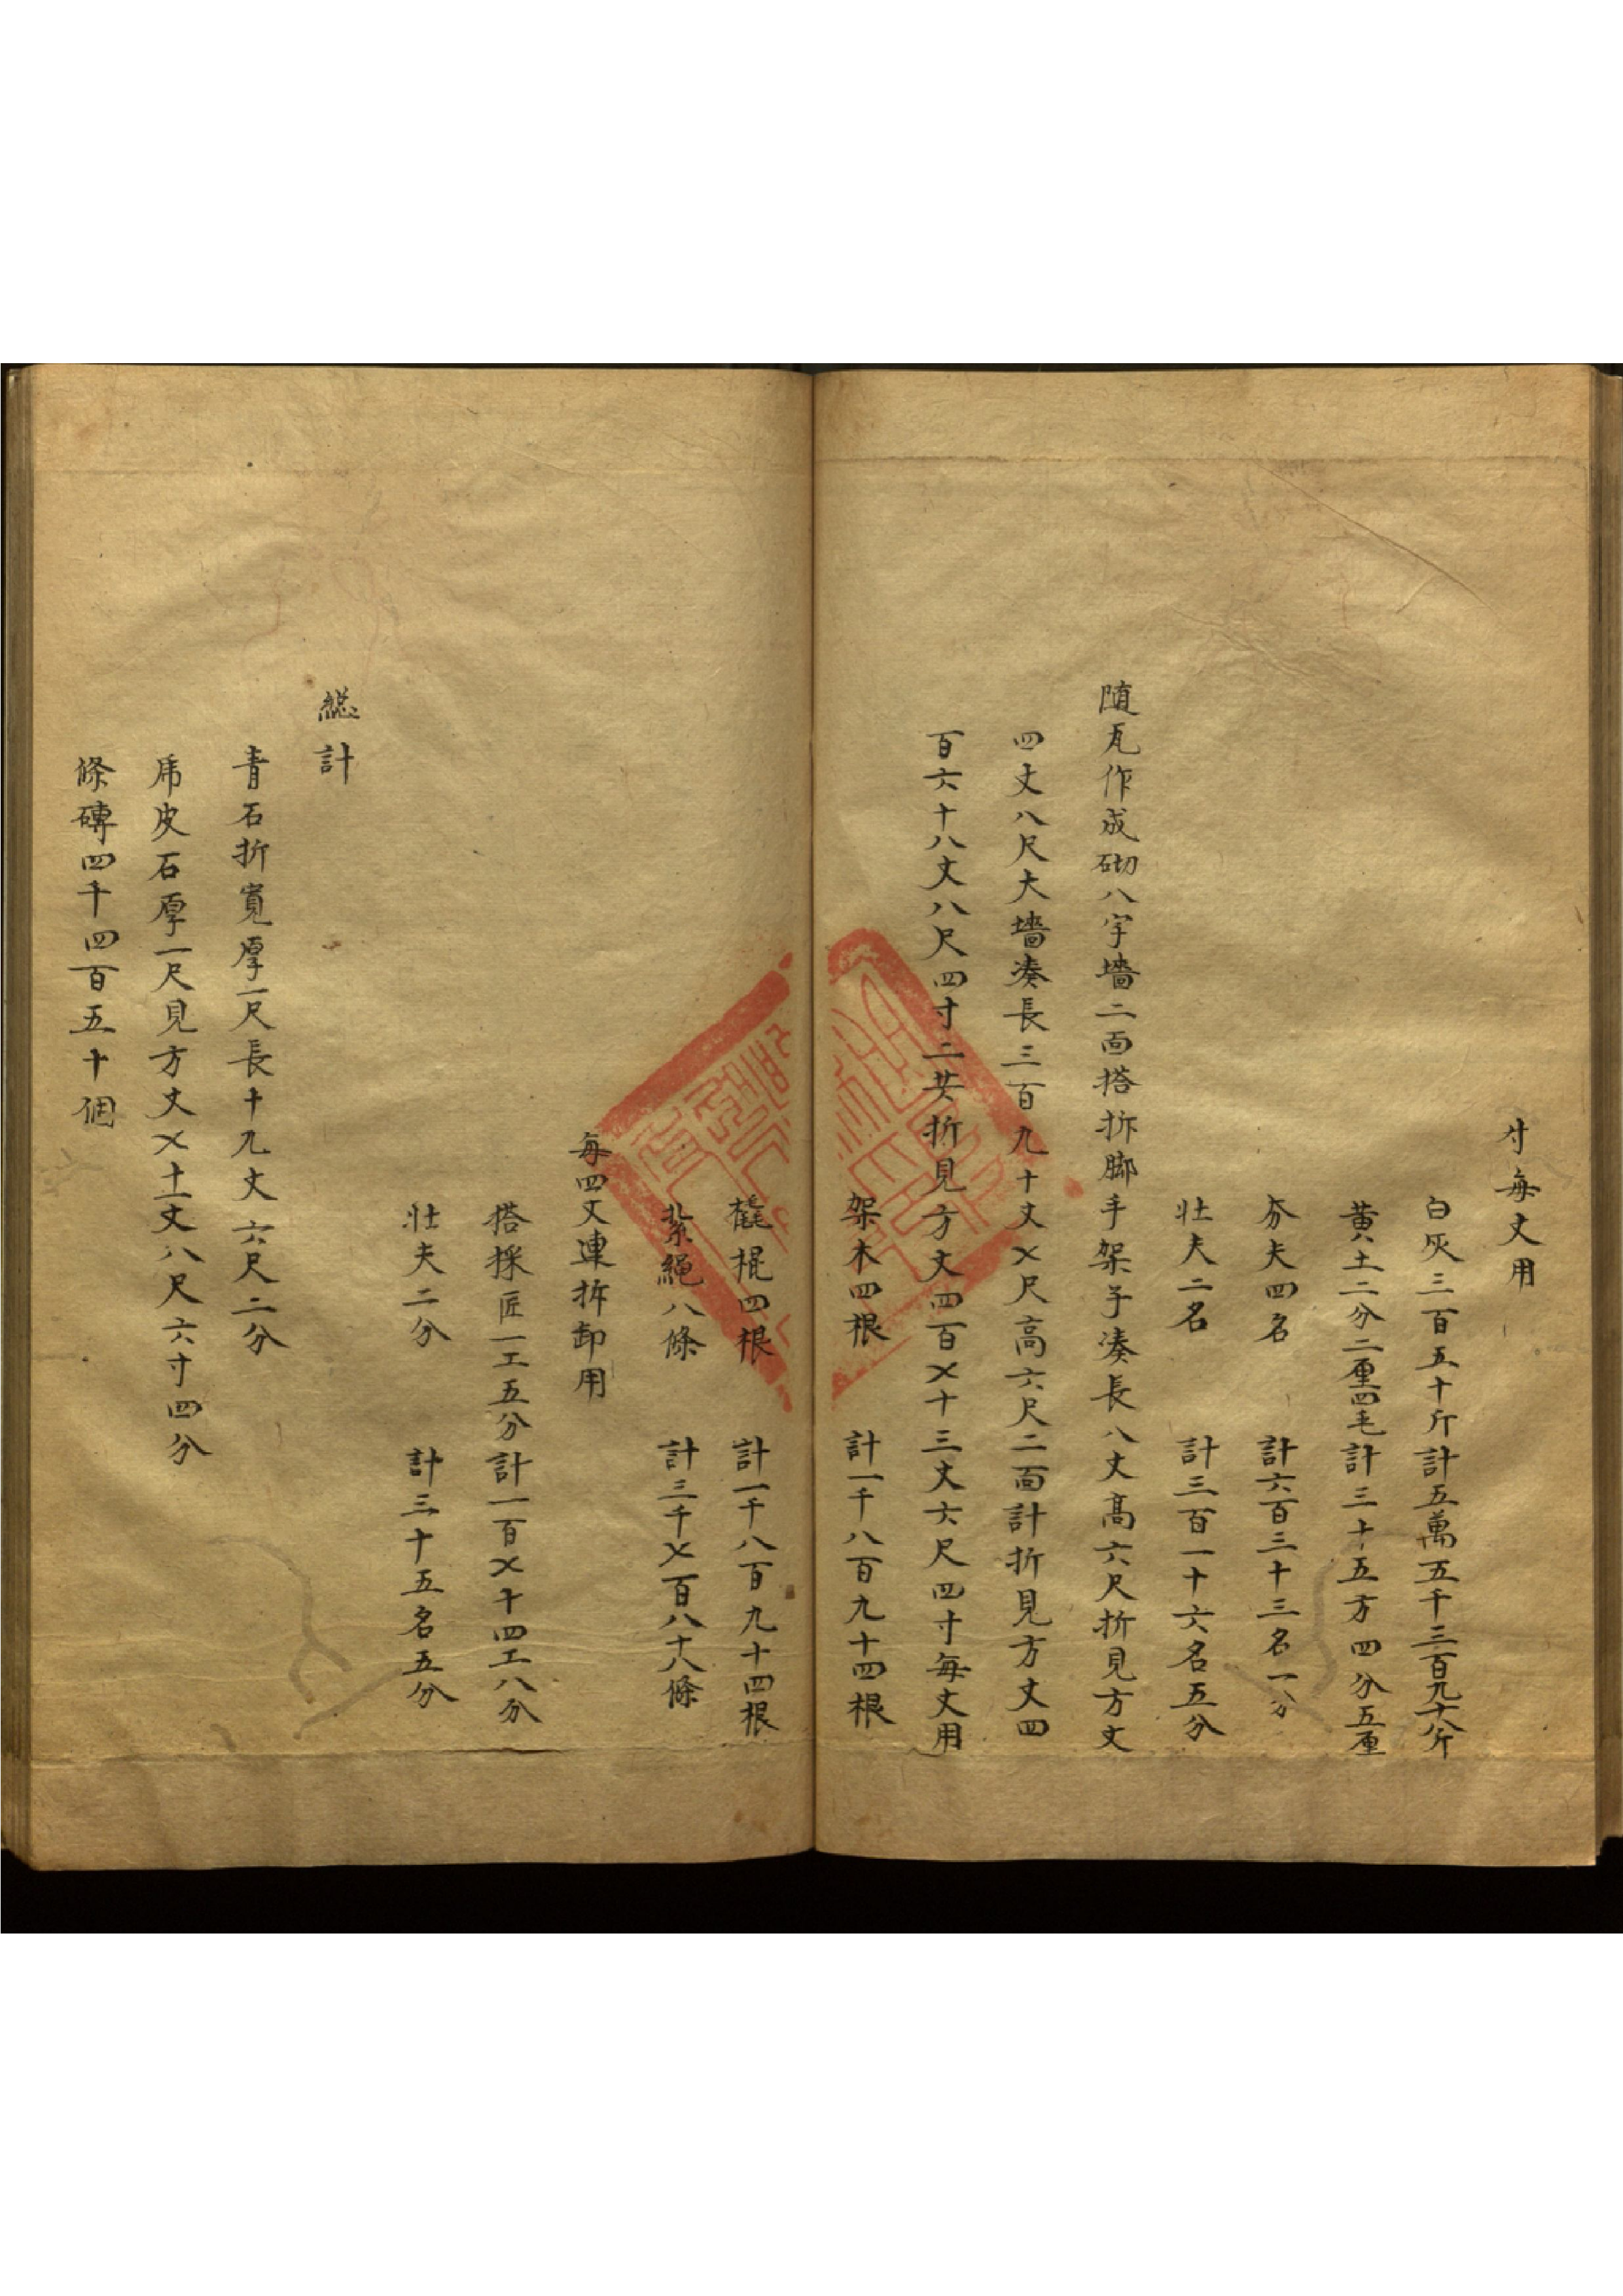 寸每丈用
白灰三百五十斤計五萬五千三百九十八斤
黄土二分二厘四毛計三十五方四分五厘
夯夫四名 計六百三十三名一分
壯夫二名 計三百一十六名五分
随瓦作成砌八字墻二面搭拆脚手架子湊長八丈高六尺折見方丈
四丈八尺大墻湊長三百九十丈乄尺高六尺二面計折見方丈四
百六十八丈八尺四寸二共折見方丈四百乄十三丈六尺四寸每丈用
架木四根 計一千八百九十四根
橇棍四根 計一千八百九十四根
紮繩八條 計三千乄百八十八條
每四丈連拆卸用
搭採匠一工五分計一百乄十四工八分
壯夫二分 計三十五名五分
総計
青石折寬厚一尺長十九丈六尺二分
乕皮石厚一尺見方丈乄十一丈八尺六寸四分
條磚四千四百五十個